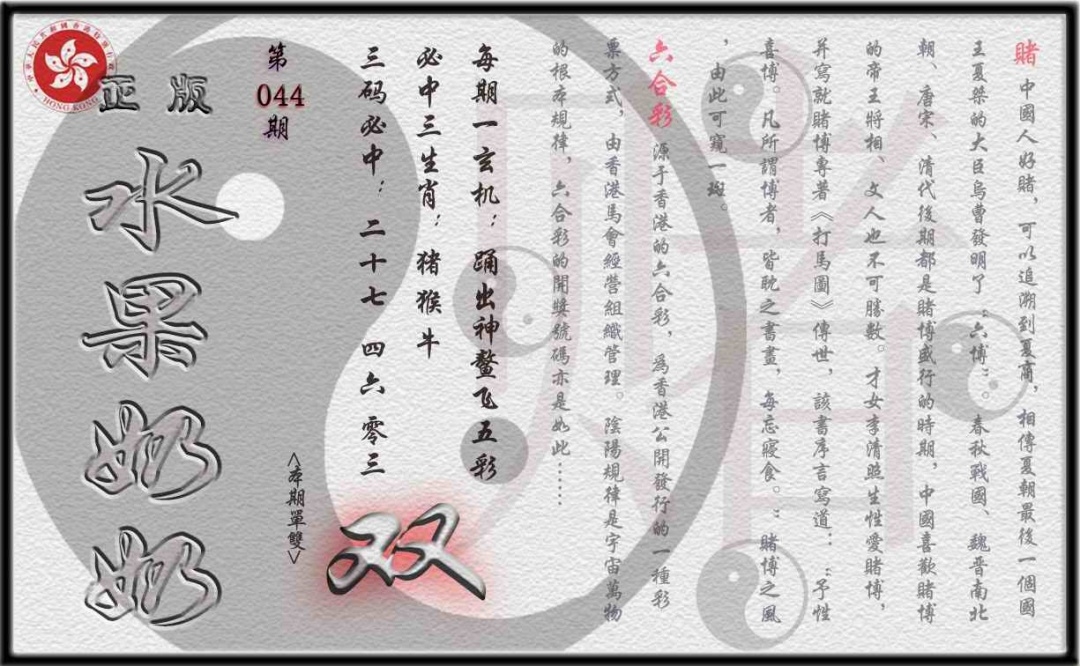 賭 中國人好賭，可以追溯到夏商，相傳夏朝最後一個國
王夏桀的大臣烏曹發明了“六博”。春秋戰國、魏晋南北
朝、唐宋、清代後期都是賭博盛行的時期，中國喜歡賭博
的帝王將相、文人也不可勝數。才女李清照生性愛賭博，
并寫就賭博專著《打馬圖》傳世，該書序言寫道：“予性
喜博。凡所謂博者，皆耽之書畫，每忘寢食。”賭博之風
，由此可窺一斑。
六合彩 源于香港的六合彩，為香港公開發行的一種彩
票方式，由香港馬會經營組織管理。陰陽規律是宇宙萬物
的根本規律，六合彩的開獎號碼亦是如此……
每期一玄机：踊出神鳌飞五彩
必中三生肖：猪猴牛
三码必中：二十七 四六 零三
双
<本期單雙>
第
044
期
正版
水果奶奶
HONG KONG